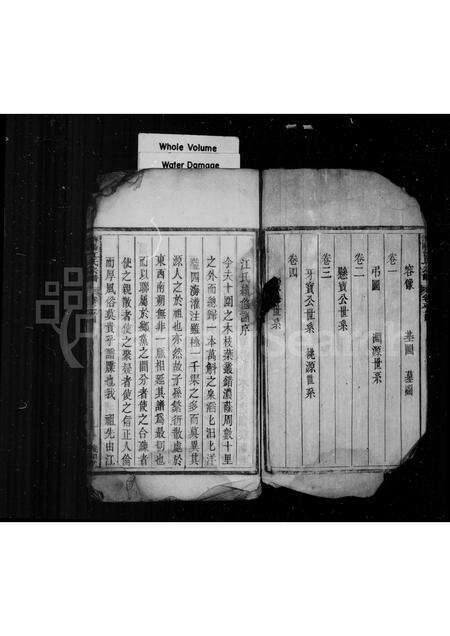 Whole Volume
Water Damage
容像 墓圖 墓圖
卷一
弔圖 淵源世系
卷二
懸寶公世系
卷三
牙寶公世系 桃源世系
卷四
世系
江氏 序
今夫十圍之木枝葉叢錯濃蔭周數十里
之外而總歸一本萬斛之泉滔七汩七汪
四海灌注雖極一千派之多而莫異其
源人之於祖也亦然故子孫繁衍散處於
東西南朔無非一脈相延其譜為最切也
而以聯屬於鄉黨之間分者使之合疎者
使之親散者使之聚昏者使之俏正人倫
而厚風俗莫貴乎譜牒也我 祖先由江